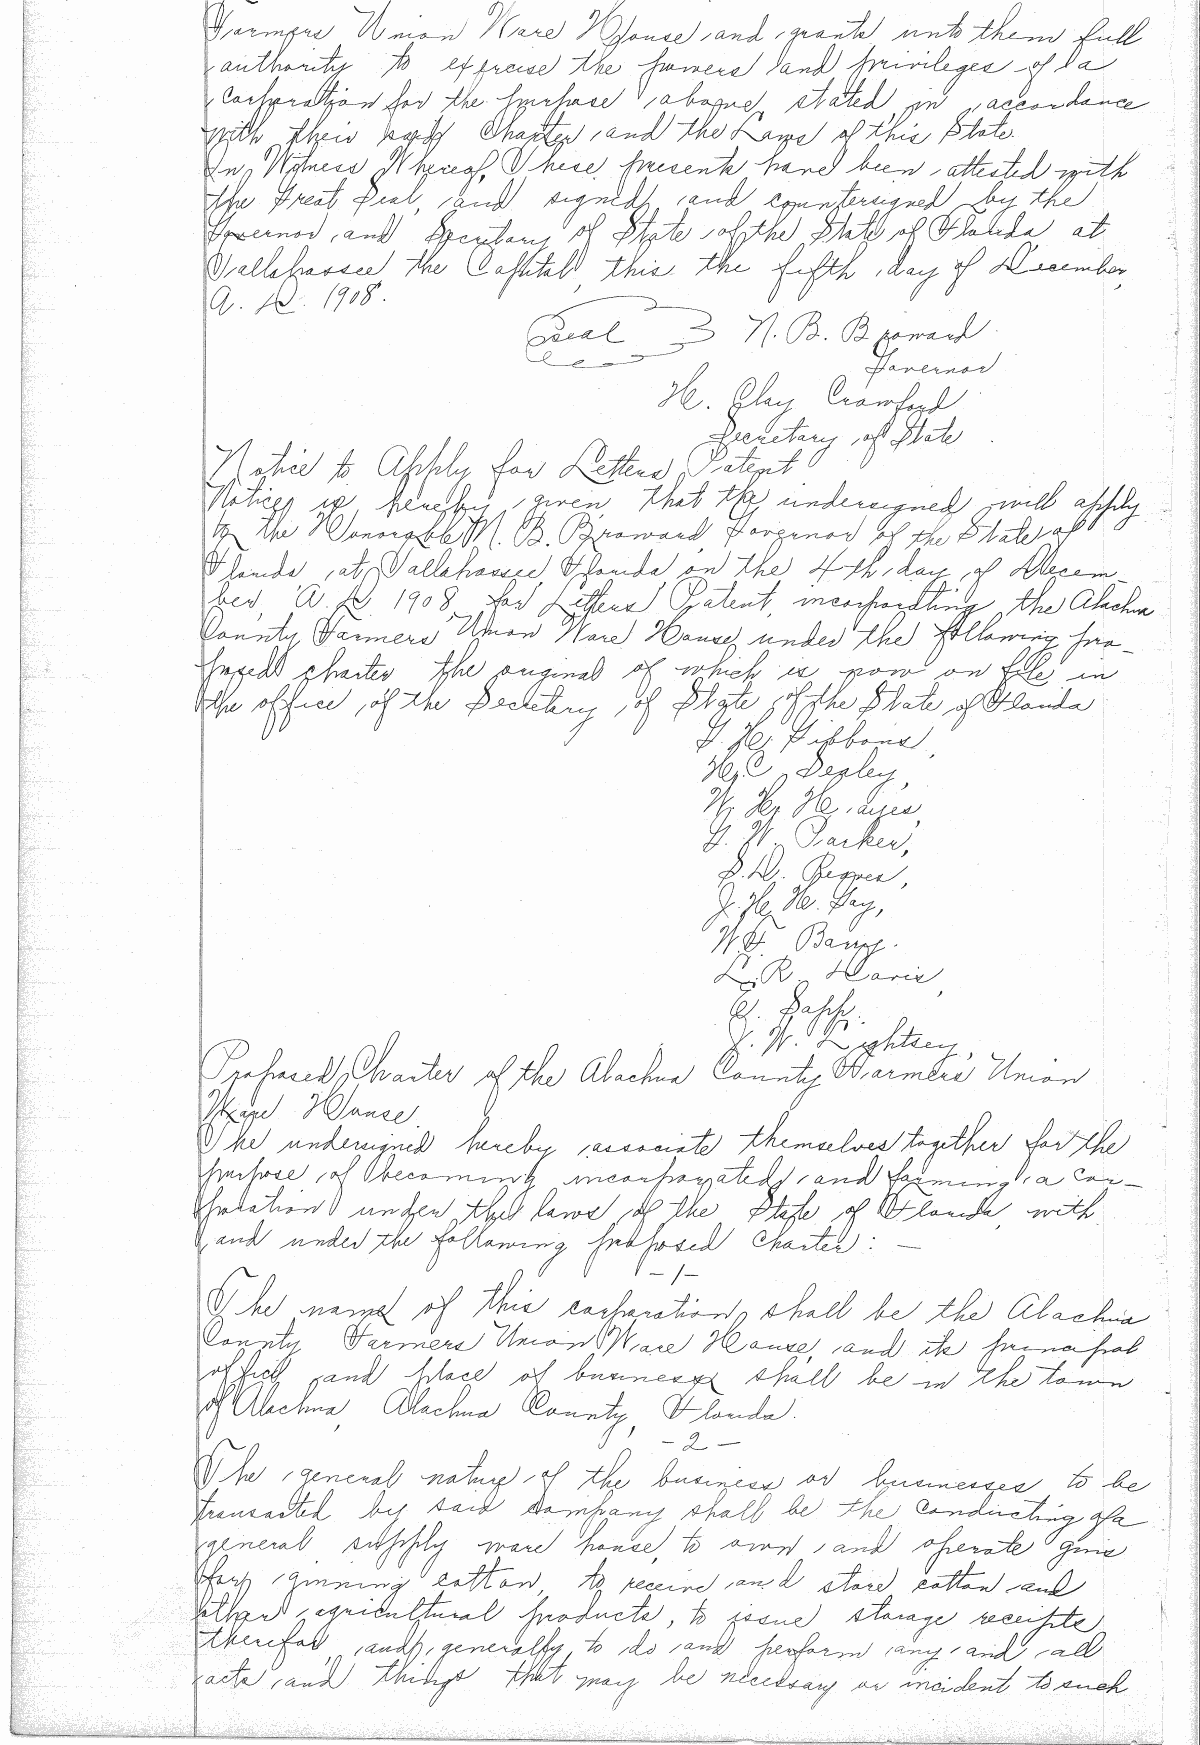 Farmers Union Ware House and grants unto them full
authority to exercise the powers and privileges of a
corporation for the purpose above stated in accordance
with their said Charter and the Laws of this State.
In Witness Whereof, These presents have been attested with
the Great Seal, and signed and countersigned by the
Governor and Secretary of State of the State of Florida at
Tallahassee the Capital, this the fifth day of December,
A. D. 1908.
Seal N. B. Broward
Governor
H. Clay Crawford
Secretary of State
Notice to Apply for Letters Patent
Notice is hereby given that the undersigned will apply
to the Honorable N. B. Broward, Governor of the State of
Florida, at Tallahassee, Florida, on the 4th day of Decem-
ber, A. D. 1908, for Letters Patent, incorporating the Alachua
County Farmers Union Ware House, under the following pro-
posed charter the original of which is now on file in
the office of the Secretary of State of the State of Florida
G. H. Gibbons,
H. C. Degley,
W. H. Hayes,
G. W. Parker,
S. D. Reeves,
J. H. H. Gay,
W. F. Barry.
L. R. Davis,
E. Sapp.
J. W. Lightsey,
Proposed Charter of the Alachua County Farmers Union
Ware House.
The undersigned hereby associate themselves together for the
purpose of becoming incorporated and forming a cor-
poration under the laws of the State of Florida, with
and under the following proposed Charter: —
-1-
The name of this corporation shall be the Alachua
County Farmers Union Ware House, and its principal
office and place of business shall be in the town
of Alachua, Alachua County, Florida.
-2-
The general nature of the business or businesses to be
transacted by said company shall be the conducting of a
general supply ware house, to own and operate gins
for ginning cotton, to receive and store cotton and
other agricultural products, to issue storage receipts
therefor, and generally to do and perform any and all
acts and things that may be necessary or incident to such